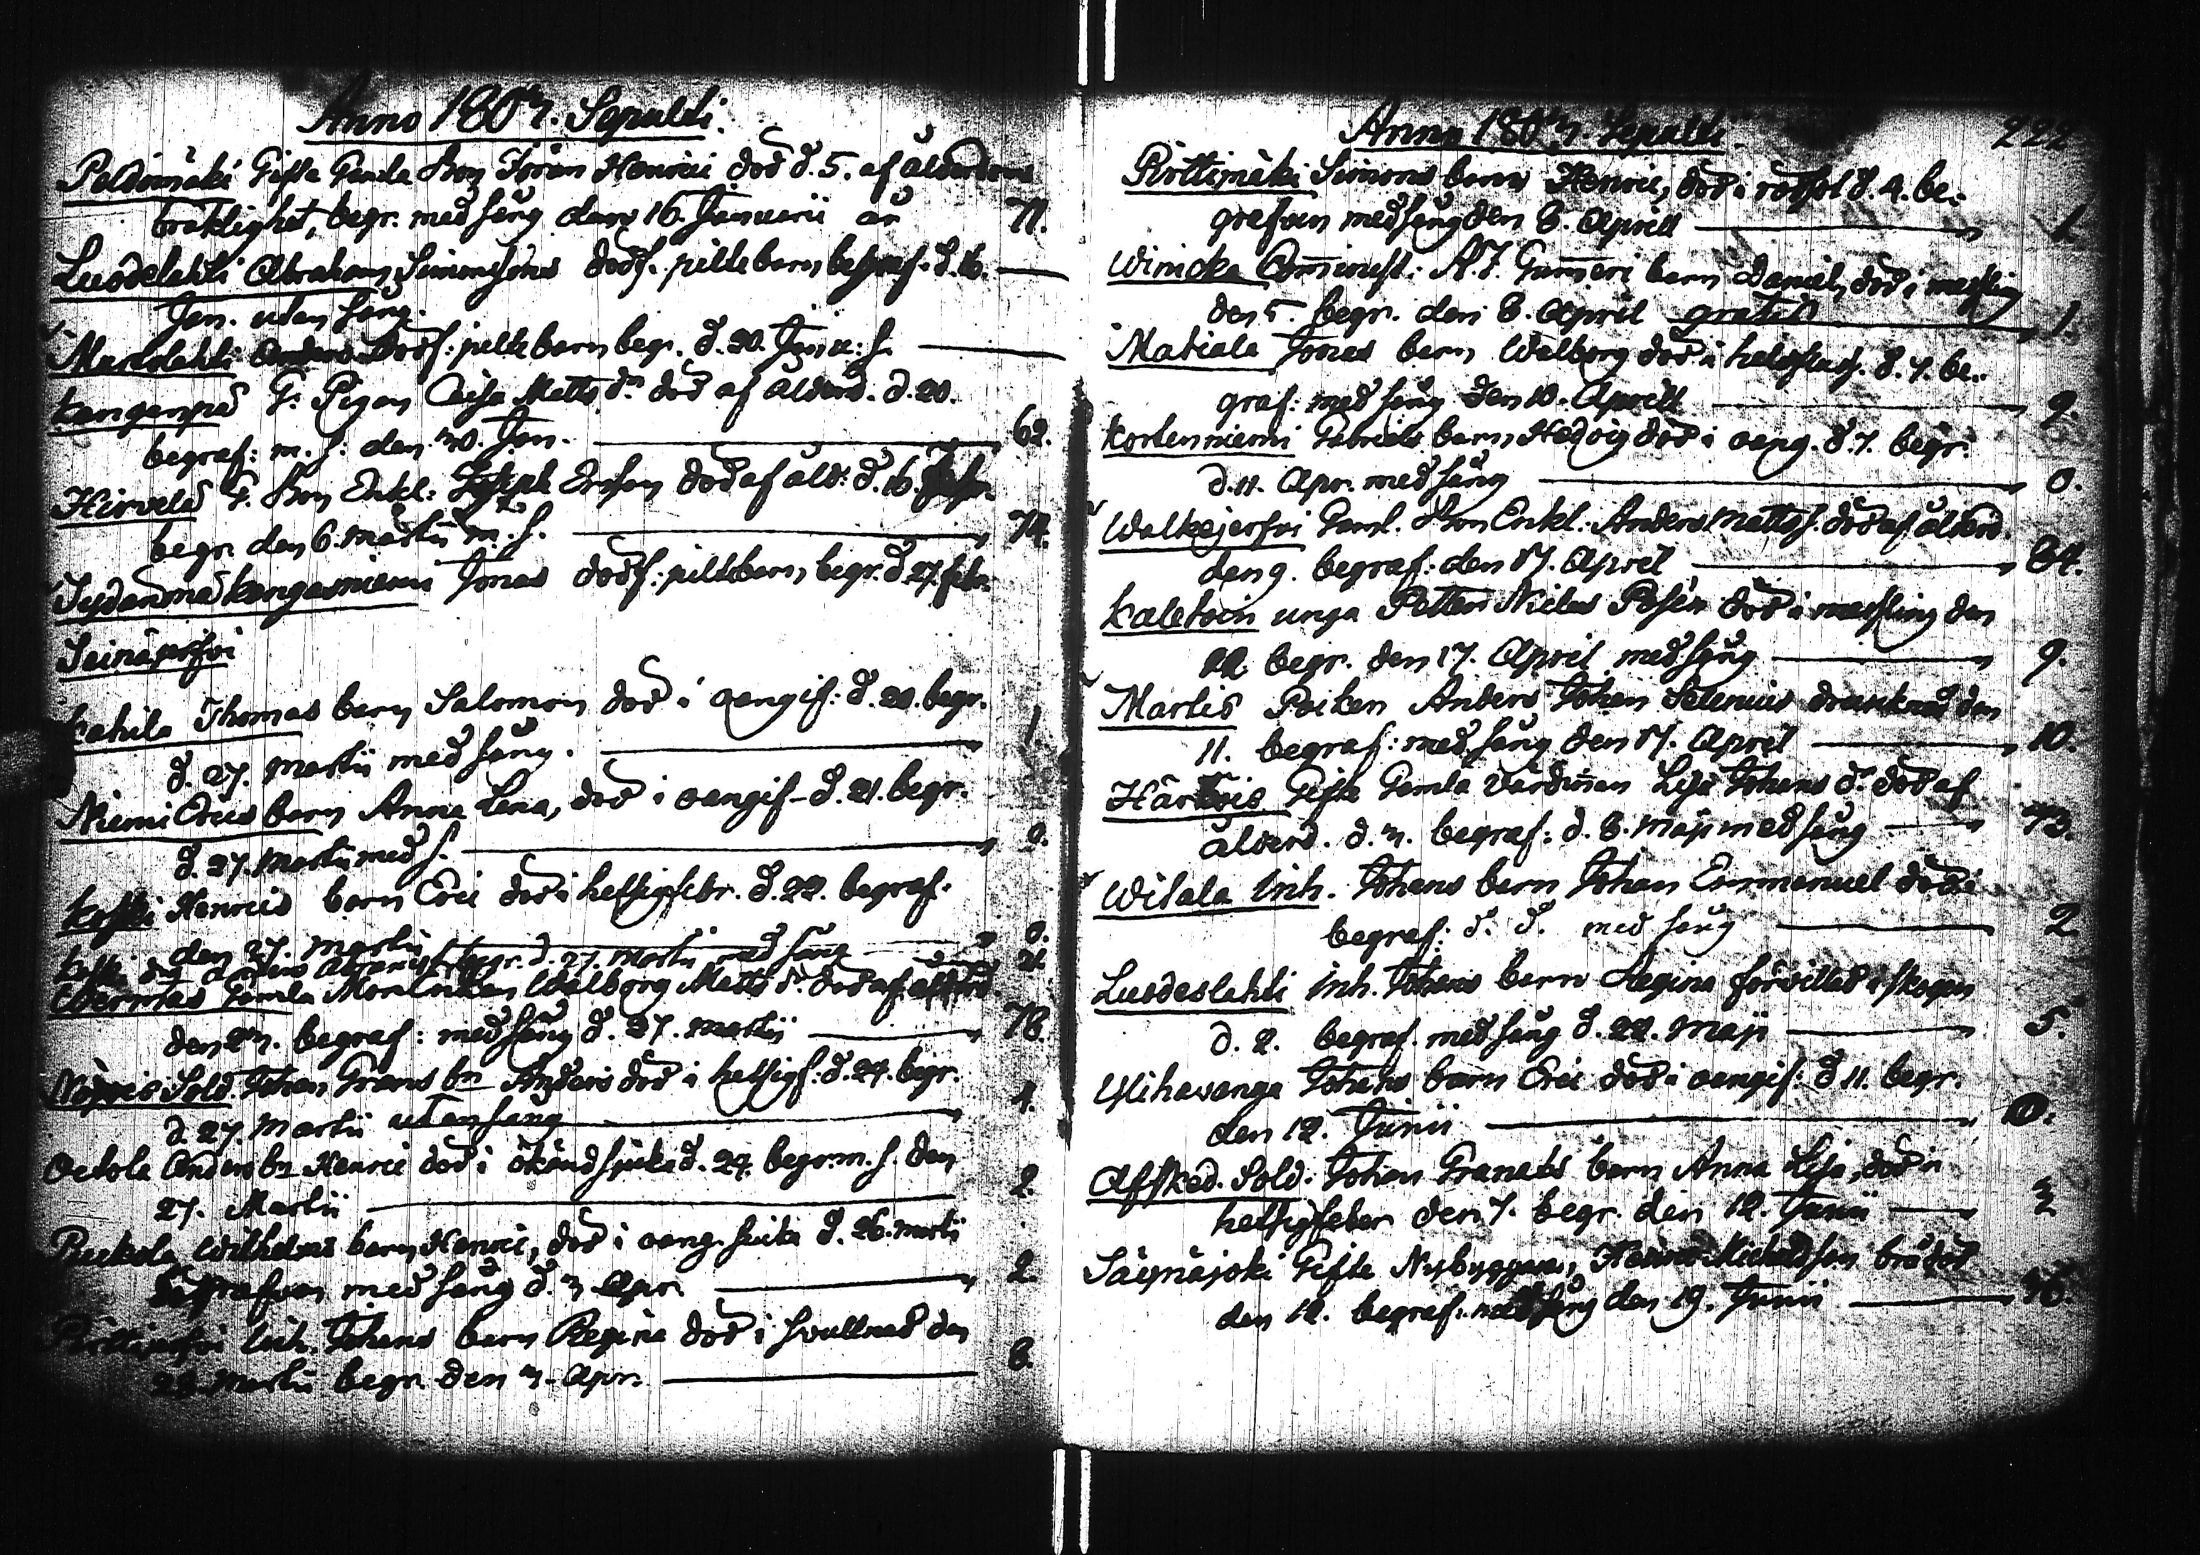 Anno 1803. Sepulti.
Paldomäki Gifta Gamla Bon Jöran Henrici död d. 5. af ålderdoms
bräklighet, begr. med sång den 16. Januarii år 71.
Luodelahti Abraham Simonssons dödf. pillebarn begraf. d. 16.
Jan. utan sång.
Martolahti Anders dödf: pillebarn begr. d. 20. Janu: s.
Kangenpä G: Pigan Caisa Matts dr död af ålderd. d. 20.
begraf: m. s. den 30. Jan. 62.
Hirvelä G. Bon Enkl: Joseph Ersson död af åld: d. 16.
begr. den 6. Martii m. s. 74.
Sydänmä Kangasniemi Jonas dödf: pillebarn, begr. d. 27. febr.
Seinäjerfvi
Kahila Thomas barn Salomon död i qvengif: d. 20. begr.
d. 27. Martii med sång. 1
Niemi Erics barn Anna Lena, död i qvengif. d. 21. begr.
d. 27. Martii med s. 9.
Koski Henrics barn Eric död i hetsigfebr. d. 22. begraf.
den 27. Martii 0.
Koski begr. d. 27. Martii med sång 21
Wermas Gamla Walborg Matts dr. död af ålderd.
den 23. begraf: med sång d. 27. Martii 78.
Sold. Johan Grans bn Anders död i hetsigf: d. 24. begr.
d. 27. Martii utan sång 1.
Ochola Anders bn Henric död i okänd sjuka d. 24. begr. m. s. den
27. Martii 2.
Puckola Wilhelms barn Henric, död i qveng. siuka d. 26. Marti
begrafven med sång d. 3. Apr. 2.
Inh. Johans barn Regina död i svullnad den
28. Martii begr. den 3. Apr. 8.
Anno 1803. Sepulti. 222
Pirttimäki Simons barn Henric, död i rödsot d. 4. be-
grafven med sång den 8. Aprill 1.
Winicka Comminist: N. J. Gummeri barn Daniel, död i mesling
den 5. begr. den 8. April gratis 1.
Matiala Jonas barn Walborg död i d. 7. be-
graf: med sång den 10. Aprill 9.
Kortenniemi Gabriels barn Hedvig död i qveng. d. 7. begr.
d. 11. Apr. med sång 0.
Walkejerfvi Gaml. Bon Enkl. Anders Mattss. död af ålderd.
den 9. begraf: den 17. April 84.
Kaletoin unga Niclas Posén död i mesling den
12. begr. den 17. April med sång 9.
Martis Poiken Anders Johan Selenius drunknad den
11. begraf: med sång den 17. April 10.
Härkois Gifta Gamla Värdinnan Lisa Johans dr. död af
ålderd. d. 3. begraf: d. 8. Maji med sång 73.
Witala Inh. Johans barn Johan Emmanuel död i
begraf: d. d. med sång 2.
Luodeslahti Inh. Johans barn Regina förvillad i skogen
d. 2. begraf. med sång d. 22. Maji 5.
Ylihavanga Johans barn Eric död i qvengif: d 11. begr.
den 12. Junii 0.
Afsked. Sold. Johan Granats barn Anna Lisa, död i
hetsigfeber den 7. begr. den 12. Junii 3
Säynäjoki Gifta Nybyggaren, Henric Michelsson brådöd
den 12. begraf: med sång den 19. Junii 46.